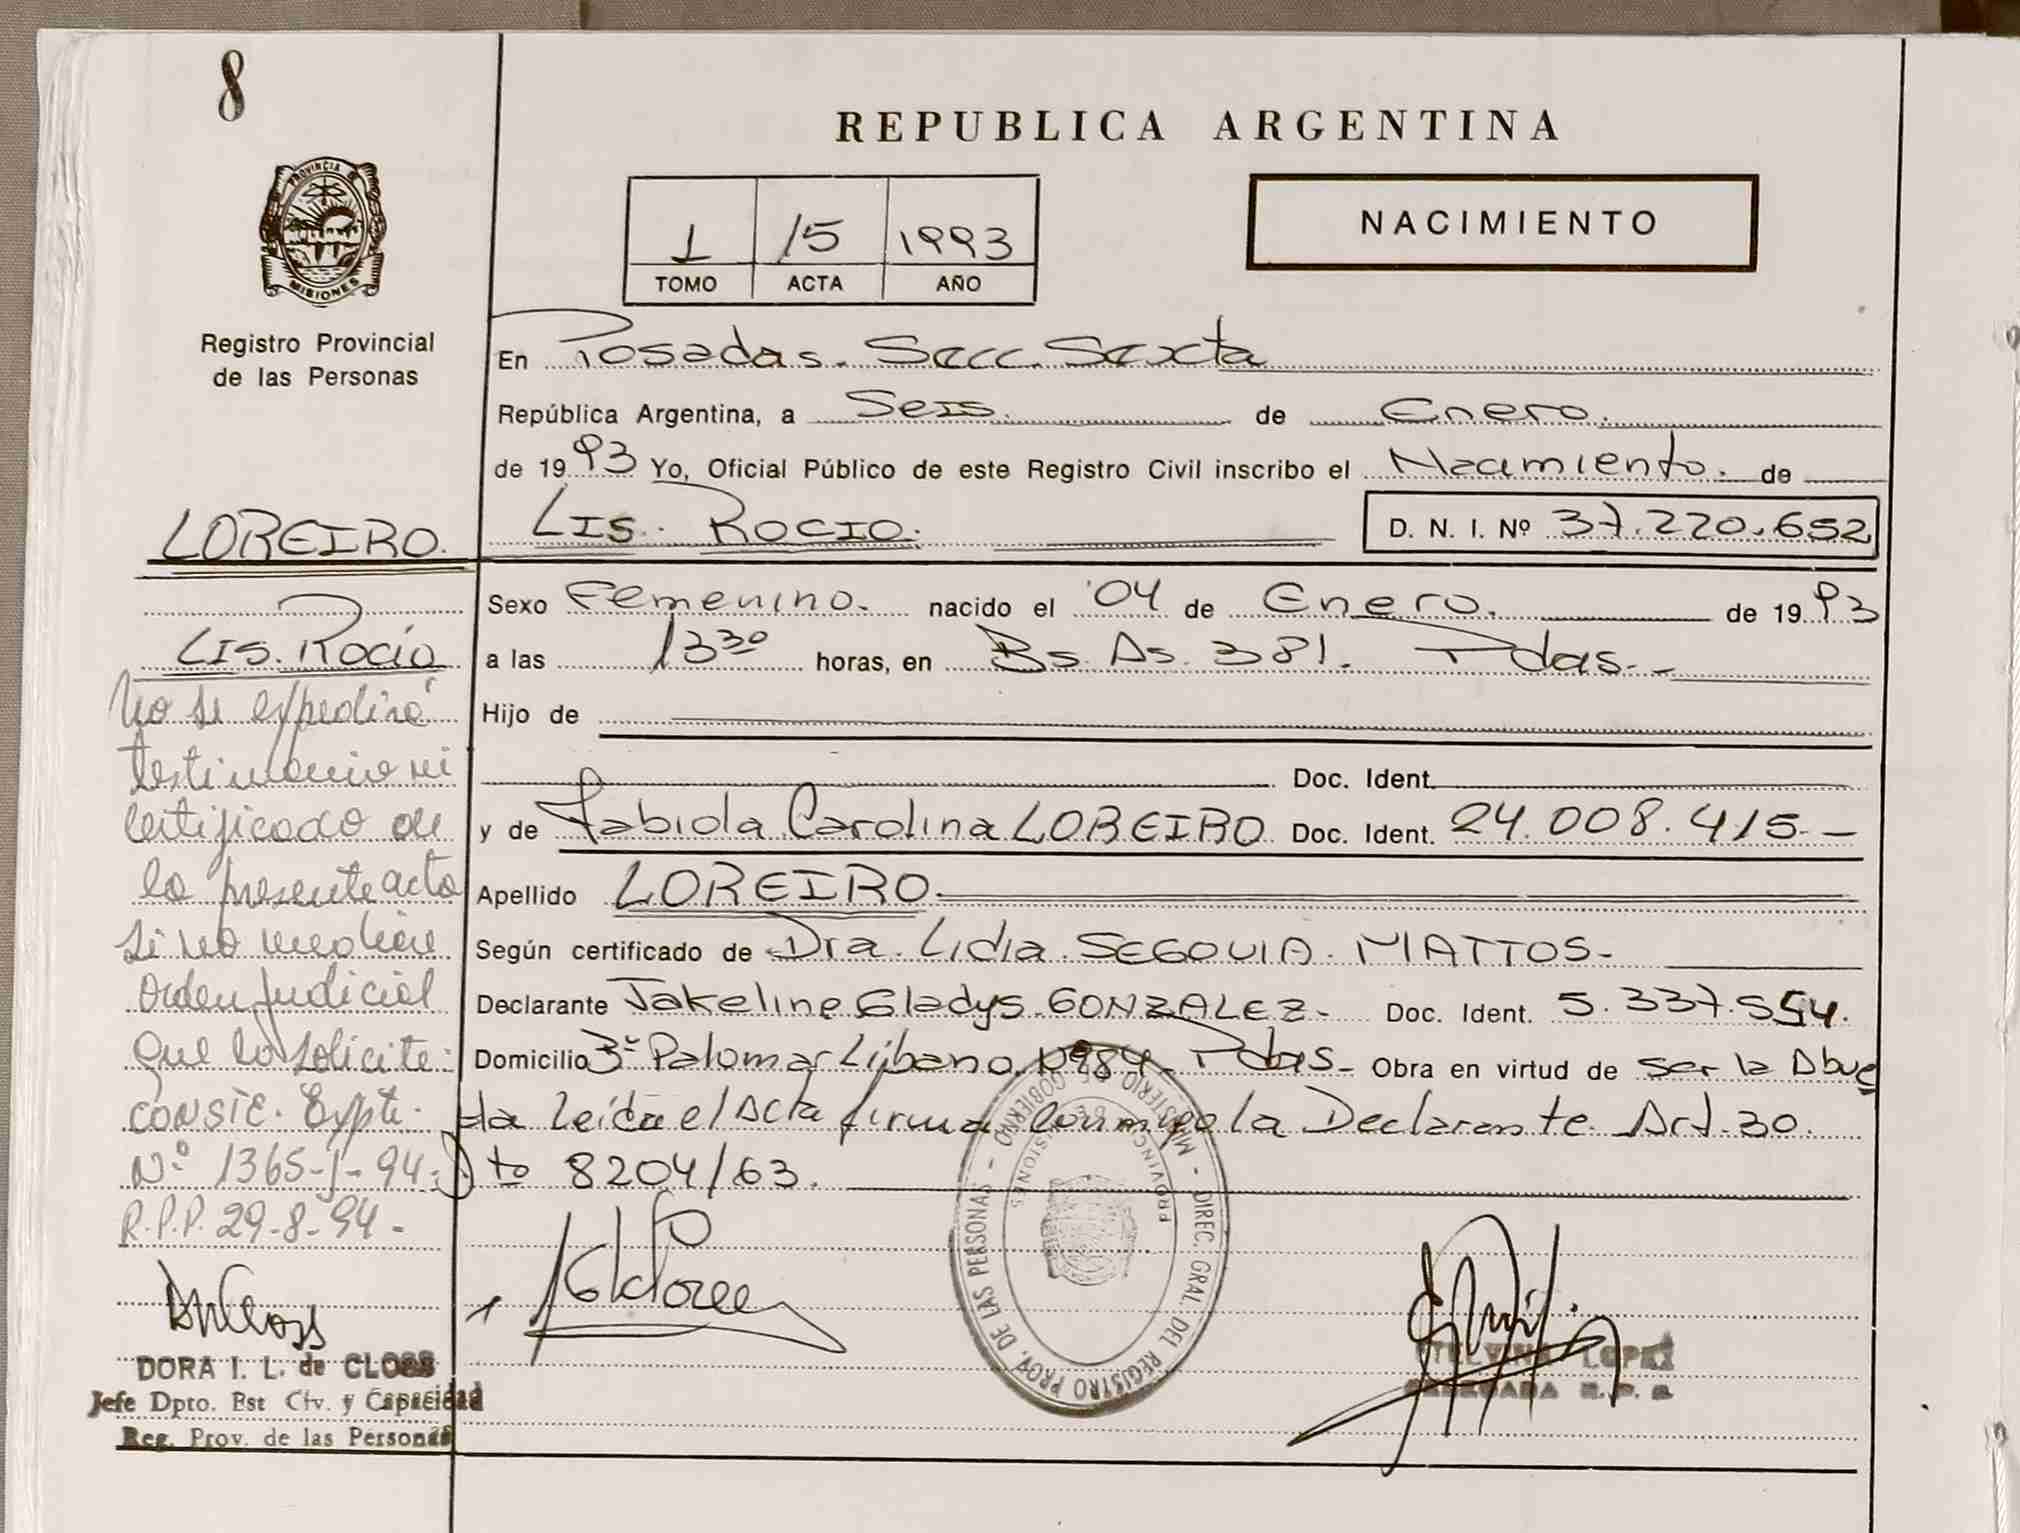 8
REPUBLICA ARGENTINA
PROVINCIA DE
MISIONES
Registro Provincial
de las Personas
1 15 1993
TOMO ACTA AÑO
NACIMIENTO
En Posadas. Secc. Sexta
República Argentina, a Seis. de Enero.
de 1993 Yo, Oficial Público de este Registro Civil inscribo el Nacimiento. de
LIS. ROCIO. D. N. I. Nº 37.220.652
Sexo Femenino. nacido el 04 de Enero. de 1993
a las 13 30 horas, en Bs. As. 381. Pdas.-
Hijo de
Doc. Ident.
y de Fabiola Carolina LOREIRO Doc. Ident. 24.008.415.-
Apellido LOREIRO.
Según certificado de Dra. Lidia. SEGOVIA. MATTOS-
Declarante Jakeline Gladys. GONZALEZ- Doc. Ident. 5.337.554.
Domicilio 3º Palomar Líbano. Nº984. Pdas- Obra en virtud de ser la Abue
la Leída el Acta firma conmigo la Declarante. Art. 30.
Dto 8204/63.
LOREIRO.
LIS. Rocío
No se expedirá
testimonio ni
certificado de
la presente acta
si no media
Orden Judicial
que lo solicite:
CONSTE. Expte.
Nº 1365-J-94.
R.P.P. 29-8-94-
DORA I. L. de CLOSS
Jefe Dpto. Est Civ. y Capacidad
Reg. Prov. de las Personas
MINISTERIO DE GOBIERNO - DIREC. GRAL. DEL REGISTRO PROV. DE LAS PERSONAS -
PROVINCIA DE MISIONES
LOPEZ
DELEGADA R. P. P.